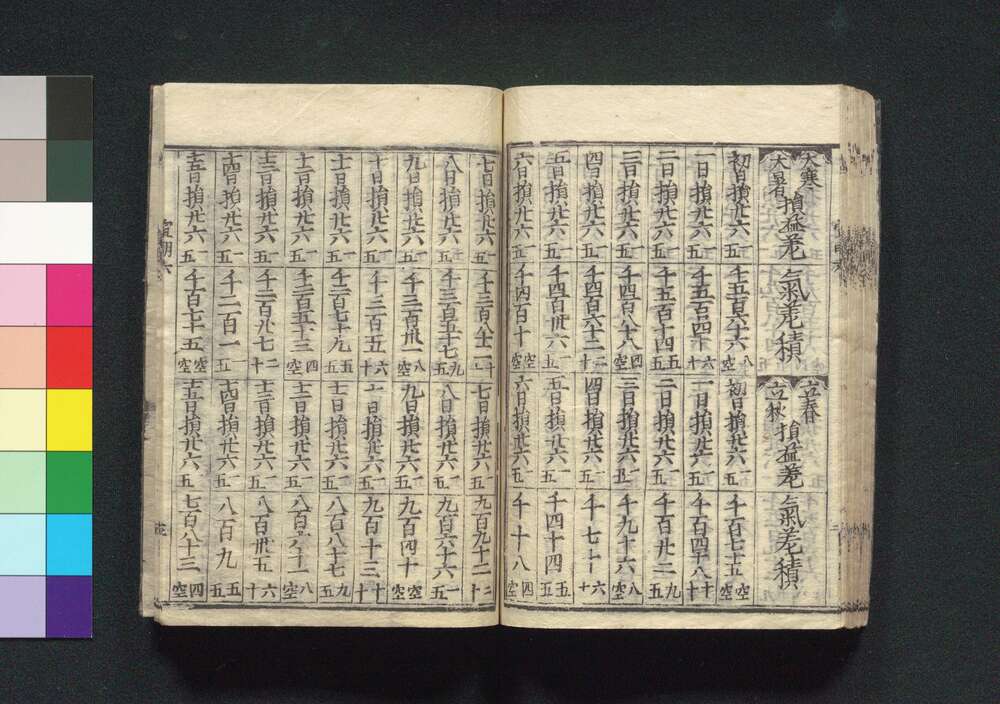 大寒
大暑
損益差 氣差積
初日損廾六一五 千五百六十六八空
一日損廾六一五 千五百四十六十
二日損廾六一五 千五百十四五五
三日損廾六一五 千四百八十八四空
四日損廾六一五 千四百六十二二十
五日損廾六一五 千四百卅六一五
六日損廾六一五 千四百十空空
七日損廾六一五 千三百八十
八日損廾六一五 千三百五十七九五
九日損廾六一五 千三百卅一八空
十日損廾六一五 千三百五六十
十一日損廾六一五 千二百七十九五五
十二日損廾六一五 千二百五十三四空
十三日損廾六一五 千二百廾七二十
十四日損廾六一五 千二百一一五
十五日損廾六一五 千百七十五空空
立春
立秋
損益差 氣差積
初日損廾六一五 千百七十五空空
一日損廾六一五 千百四十八十十
二日損廾六一五 千百廾二九五
三日損廾六一五 千九十六八空
四日損廾六一五 千七十六十
五日損廾六一五 千四十四五五
六日損廾六一五 千十八四空
七日損廾六一五 九百九十二二十
八日損廾六一五 九百六十六一五
九日損廾六一五 九百四十空空
十日損廾六一五 九百十三十十
十一日損廾六一五 八百八十七九五
十二日損廾六一五 八百六十一八空
十三日損廾六一五 八百卅五六十
十四日損廾六一五 八百九五五
十五日損廾六一五 七百八十三四空
宣明六